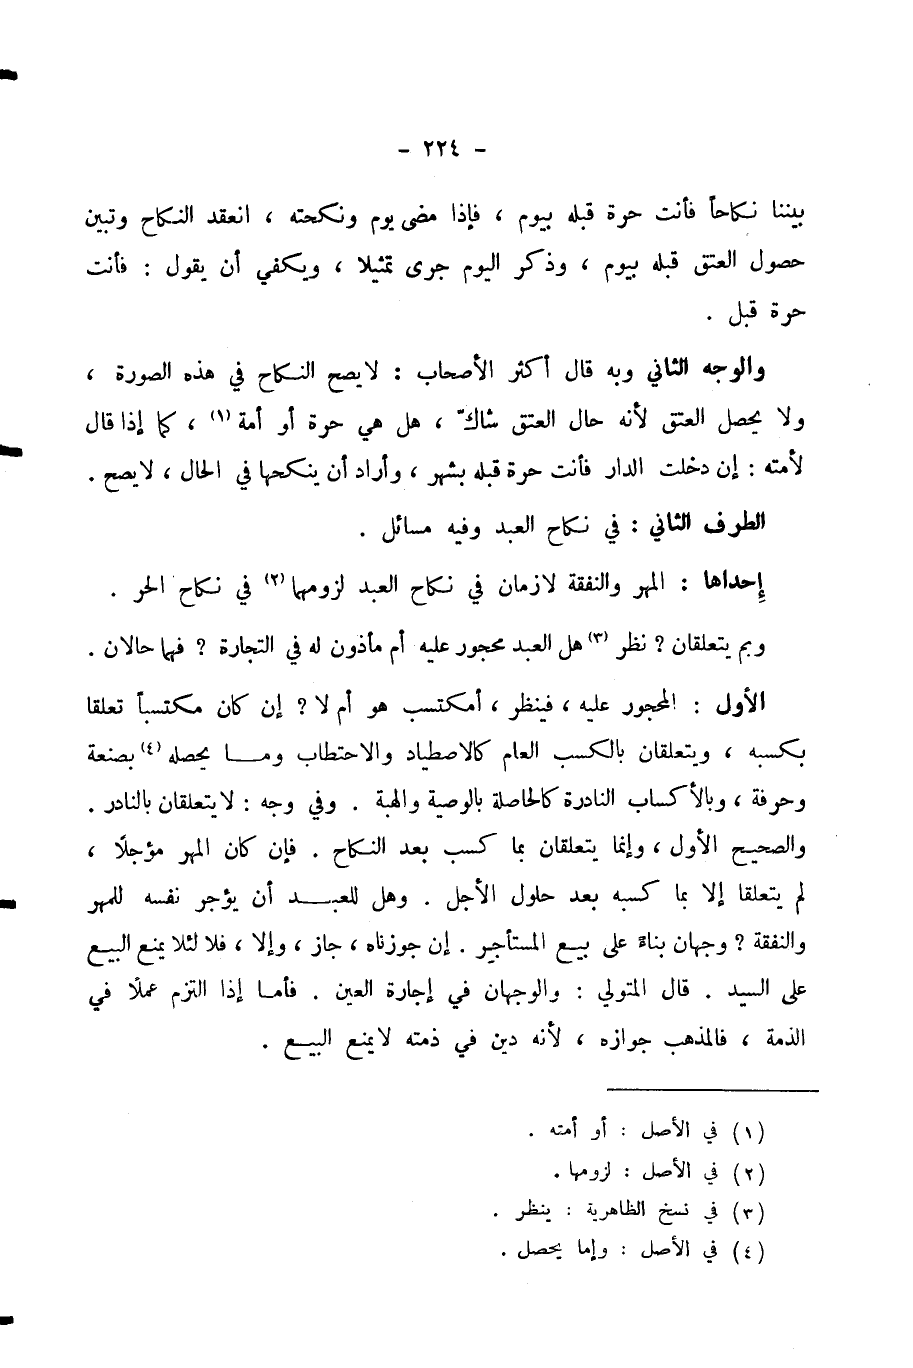 - ٢٢٤ -
بيننا نكاحاً فأنت حرة قبله بيوم ، فإذا مضى يوم ونكحته ، انعقد النكاح وتبين
حصول العتق قبله بيوم ، وذكر اليوم جرى تمثيلا ، ويكفي أن يقول : فأنت
حرة قبل .
والوجه الثاني وبه قال أكثر الأصحاب : لايصح النكاح في هذه الصورة ،
ولا يحصل العتق لأنه حال العتق شاكّ ، هل هي حرة أو أمة (١) ، كما إذا قال
لأمته : إن دخلت الدار فأنت حرة قبله بشهر ، وأراد أن ينكحها في الحال ، لايصح .
الطرف الثاني : في نكاح العبد وفيه مسائل .
إحداها : المهر والنفقة لازمان في نكاح العبد لزومهما (٢) في نكاح الحر .
وبم يتعلقان ? نظر (٣) هل العبد محجور عليه أم مأذون له في التجارة ? فهما حالان .
الأول : المحجور عليه ، فينظر ، أمكتسب هو أم لا ? إن كان مكتسباً تعلقا
بكسبه ، ويتعلقان بالكسب العام كالاصطياد والاحتطاب وما يحصله (٤) بصنعة
وحرفة ، وبالأكساب النادرة كالحاصلة بالوصية والهبة . وفي وجه : لايتعلقان بالنادر .
والصحيح الأول ، وإنما يتعلقان بما كسب بعد النكاح . فإن كان المهر مؤجلًا ،
لم يتعلقا إلا بما كسبه بعد حلول الأجل . وهل للعبد أن يؤجر نفسه للمهر
والنفقة ? وجهان بناءً على بيع المستأجر . إن جوزناه ، جاز ، وإلا ، فلا لئلا يمنع البيع
على السيد . قال المتولي : والوجهان في إجارة العين . فأما إذا التزم عملًا في
الذمة ، فالمذهب جوازه ، لأنه دين في ذمته لايمنع البيع .
(١) في الأصل : أو أمته .
(٢) في الأصل : لزومها .
(٣) في نسخ الظاهرية : ينظر .
(٤) في الأصل : وإما يحصل .